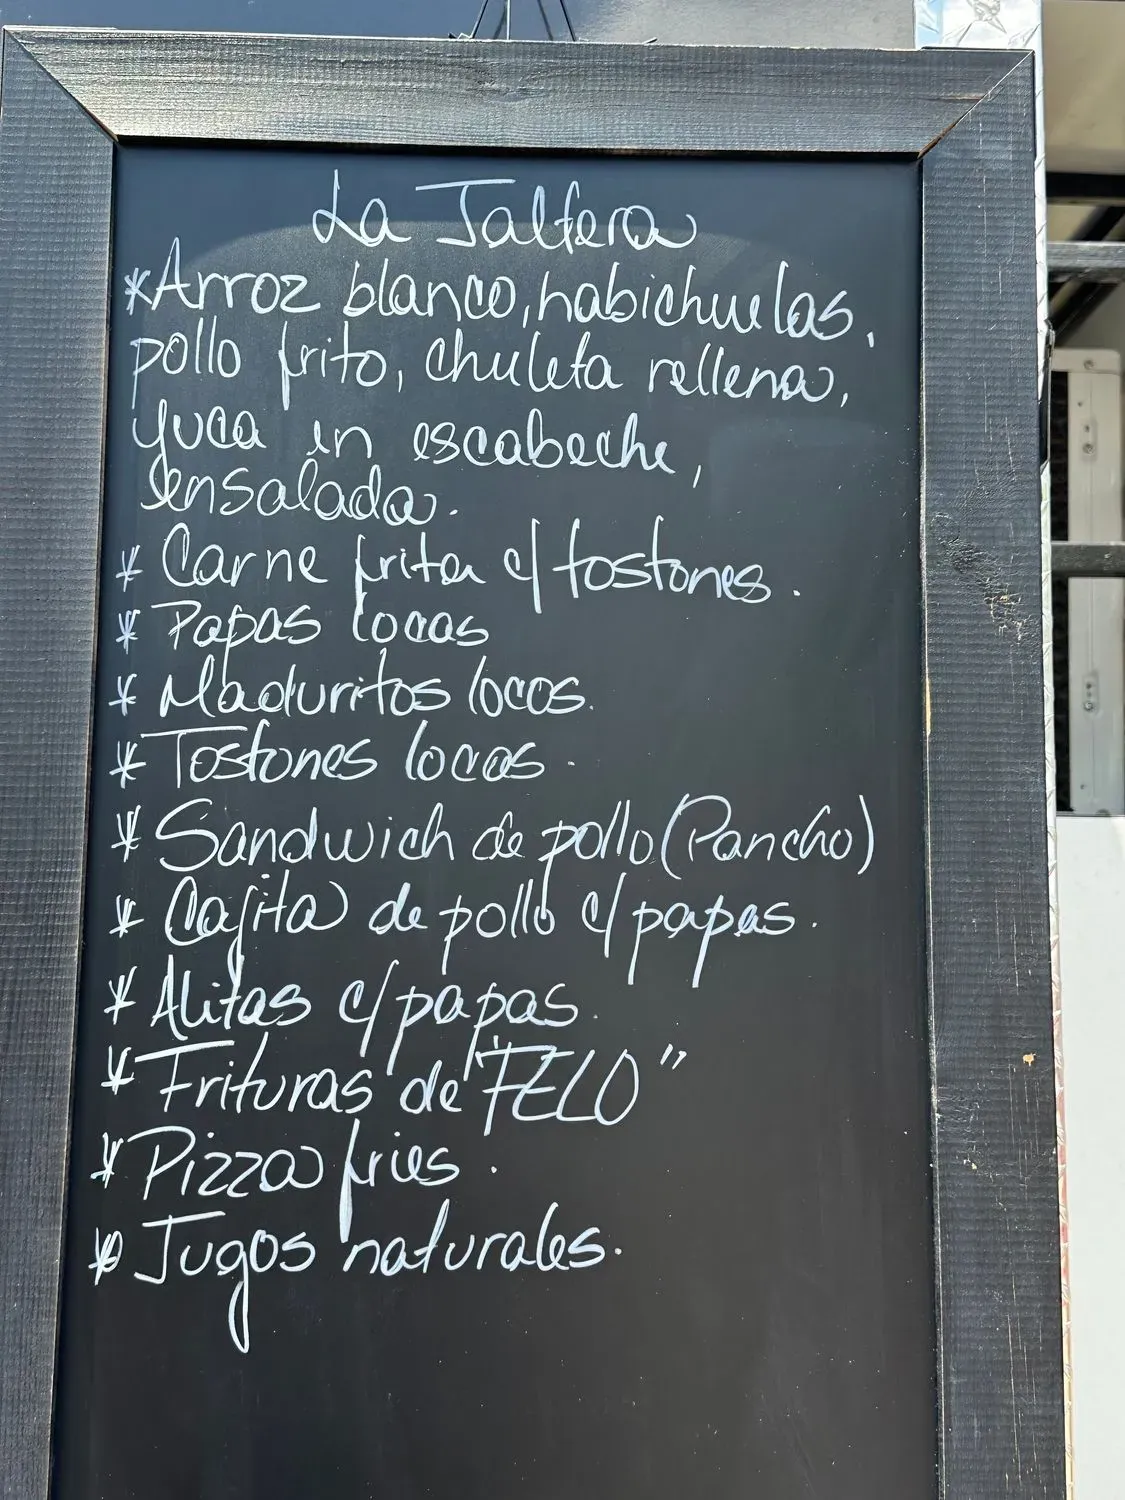 La Jalfera
*Arroz blanco, habichuelas,
pollo frito, chuleta rellena,
yuca en escabeche,
ensalada.
* Carne frita c/ tostones.
* Papas locas
* Maduritos locos.
* Tostones locos.
* Sandwich de pollo (Pancho)
* Cajita de pollo c/ papas.
* Alitas c/ papas.
* Frituras de "FELO"
* Pizza fries.
* Jugos naturales.